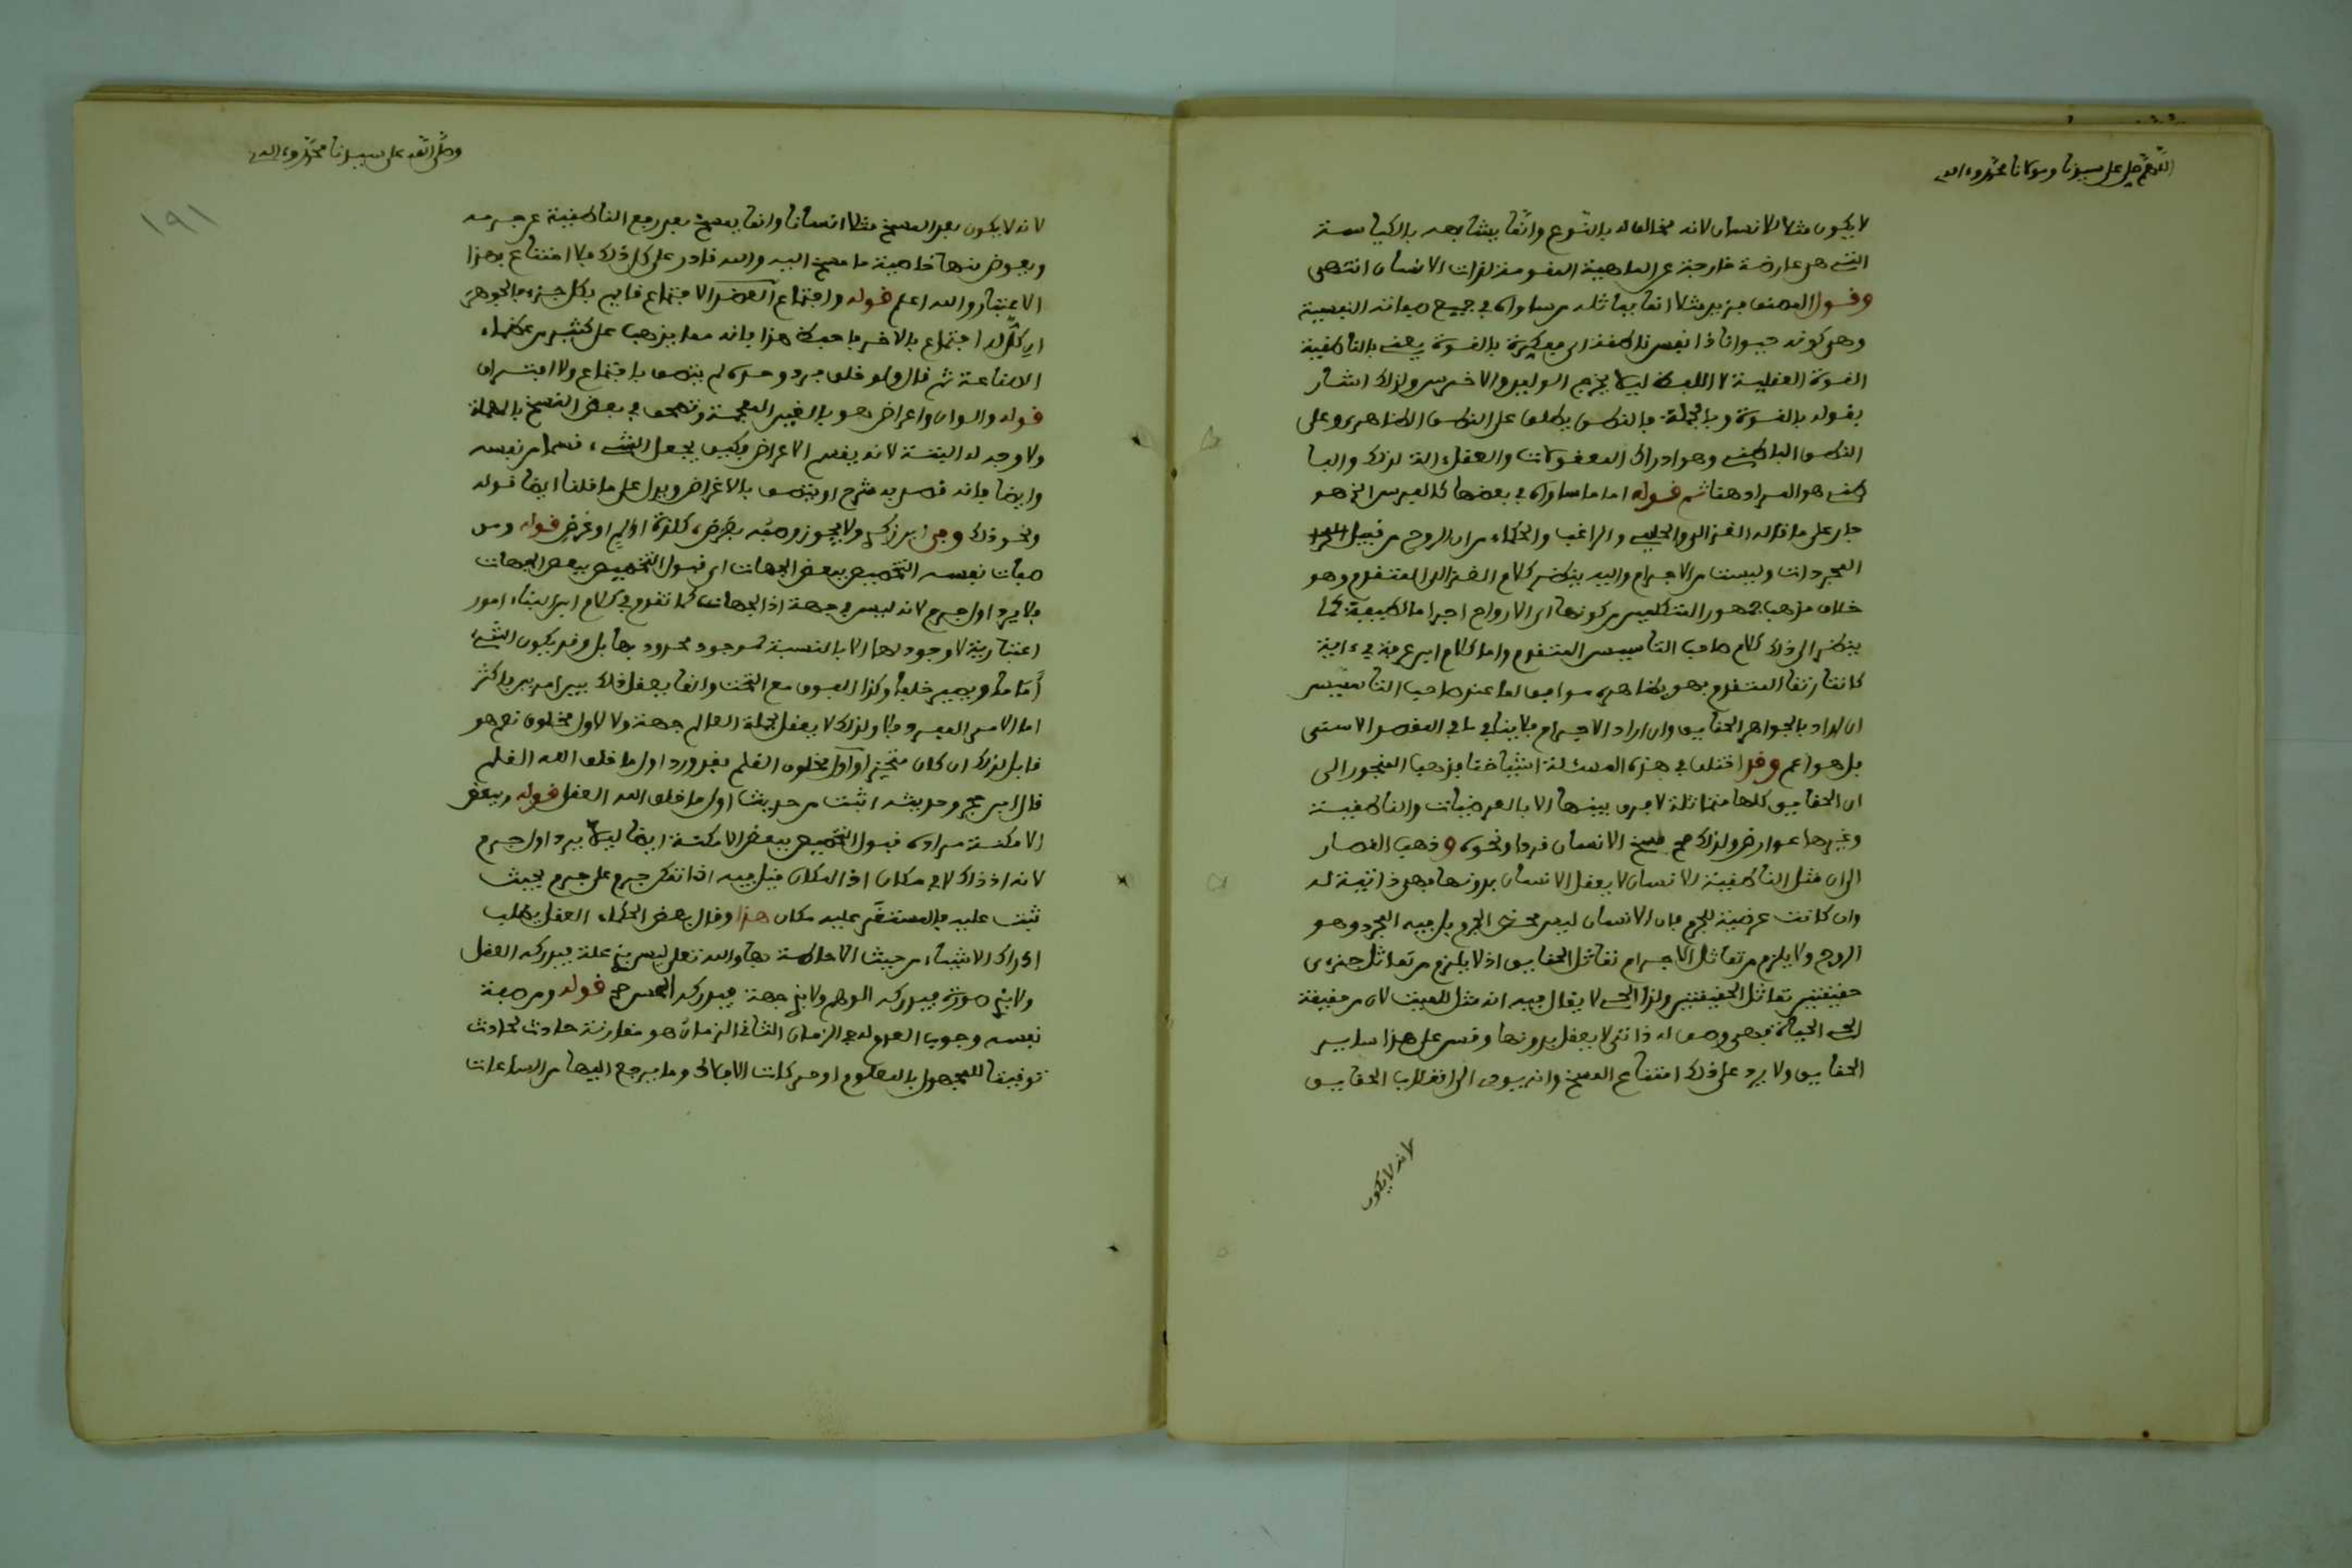 اللهم صل على سيدنا ومولانا محمد وءاله
لا يكون مثلا للانسان لانه مخالف له بالنوع وانما يشابهه بالكياسة
التي هي عارضة خارجة عن الماهية المقومة لذات الانسان انتهى
وقول المصنف مثلا انما يماثله من ساواه في جميع صفاته النفسية
وهي كونه حيوانا ذا نفس ناطقة اي مفكرة بالقوة يعني بالناطقية
القوة العقلية لا اللفظ ليلا يخرج الوليد والاخرس ولذلك اشار
بقوله بالقوة وبالجملة فالنطق يطلق على النطق الظاهري وعلى
النطق الباطني وهو ادراك المعقولات والعقل ءالة لذلك والبا
طني هو المراد هنا ثم قوله اما ما ساواه في بعضها كالفرس الخ هو
جار على ما قاله الغزالي والحليمي والراغب والحكماء من ان الروح من قبيل
المجردات وليست من الاجرام واليه ينظر كلام الغزالي المتقدم وهو
خلاف مذهب جمهور المتكلمين من كونها اي الارواح اجراما لطيفة كما
ينظر الى ذلك كلام صاحب التاسيس المتقدم واما كلام ابن عرفة في ءاية
كانتا رتقا المتقدم فهو بظاهره موافق لما عند صاحب التاسيس
ان اراد بالجواهر الحقايق وان اراد الاجرام فلا ينافي ما في المقصد الاسنى
بل هو اعم وقد اختلف في هذه المسئلة اشياخنا فذهب المنجور الى
ان الحقايق كلها متماثلة لا فرق بينها الا بالعرضيات والناطقية
وغيرها عوارض ولذلك صح مسخ الانسان قردا ونحوه وذهب القصار
الى ان مثل الناطقية للانسان لا يعقل الانسان بدونها فهي ذاتية له
وان كانت عرضية للجرم فان الانسان ليس محض الجرم بل فيه المجرد وهو
الروح ولا يلزم من تماثل الاجرام تماثل الحقايق اذ لا يلزم من تماثل جزءي
حقيقتين تماثل الحقيقتين ولذا الحي لا يقال فيه انه مثل للميت لان من حقيقة
الحي الحياة فهي وصف له ذاتي لا يعقل بدونها وقس على هذا ساير
الحقايق ولا يرد على ذلك امتناع المسخ وانه يودي الى انقلاب الحقايق
لانه لا يكون
وصلى الله على سيدنا محمد وءاله
١٩١
لانه لا يكون بعد المسخ مثلا انسانا وانما يمسخ بعد رفع الناطقية عن جرمه
ويعوض منها خاصية ما مسخ اليه والله قادر على كل ذلك فلا امتناع بهذا
الاعتبار والله اعلم قوله واجتماع الاجتماع قايم بكل جزء فالجوهر
اي كل له اجتماع بالاخر فاحفظ هذا فانه مما يذهب على كثير من عظماء
الصناعة ثم قال ولو خلق فرد وحده لم يتصف باجتماع ولا افتراق
قوله والوان واعراض هو بالغين المعجمة وتصحف في بعض النسخ بالمهملة
ولا وجه له البتة لانه يقسم الاعراض فكيف يجعل الشيء قسما من نفسه
وايضا فانه قصد به شرح او يتصف بالاغراض ويدل على ما قلنا ايضا قوله
ونحو ذلك وفي ابن زكري ولا يجوز وصفه بغرض كلذة او الم او غرض قوله ومن
صفات نفسه التخصيص ببعض الجهات اي قبول التخصيص ببعض الجهات
فلا يرد اول جرم لانه ليس في جهة اذ الجهات كما تقدم في كلام ابن البناء امور
اعتبارية لا وجود لها الا بالنسبة لموجود محدود بها بل وقد يكون الشيء
اماما ويصير خلفا وكذا الفوق مع التحت وانما يعقل ذلك بين امرين فاكثر
اما الامر المفرد فلا ولذلك لا يعقل لجملة العالم جهة ولا لاول مخلوق نعم هو
قابل لذلك ان كان متحيزا واول مخلوق القلم فقد ورد اول ما خلق الله القلم
قال ابن حجر وحديثه اثبت من حديث اول ما خلق الله العقل قوله وببعض
الامكنة مراده قبول التخصيص ببعض الامكنة ايضا ليلا يرد اول جرم
لانه اذ ذاك لا في مكان اذ المكان قيل فيه اذا تمكن جرم على جرم بحيث
ثبت عليه فالمستقر عليه مكان هذا وقال بعض الحكماء العقل يطلب
ادراك الاشياء من حيث الاحاطة بها والله تعلى ليس بذي علة فيدركه العقل
ولا بذي صورة فيدركه الوهم ولا بذي جهة فيدركه الحس صح قوله ومن صفة
نفسه وجوب العدم له في الزمان الثاني الزمان هو مقارنة حادث لحادث
توقيتا للمجهول بالمعلوم او حركات الافلاك وما يرجع اليها من الساعات